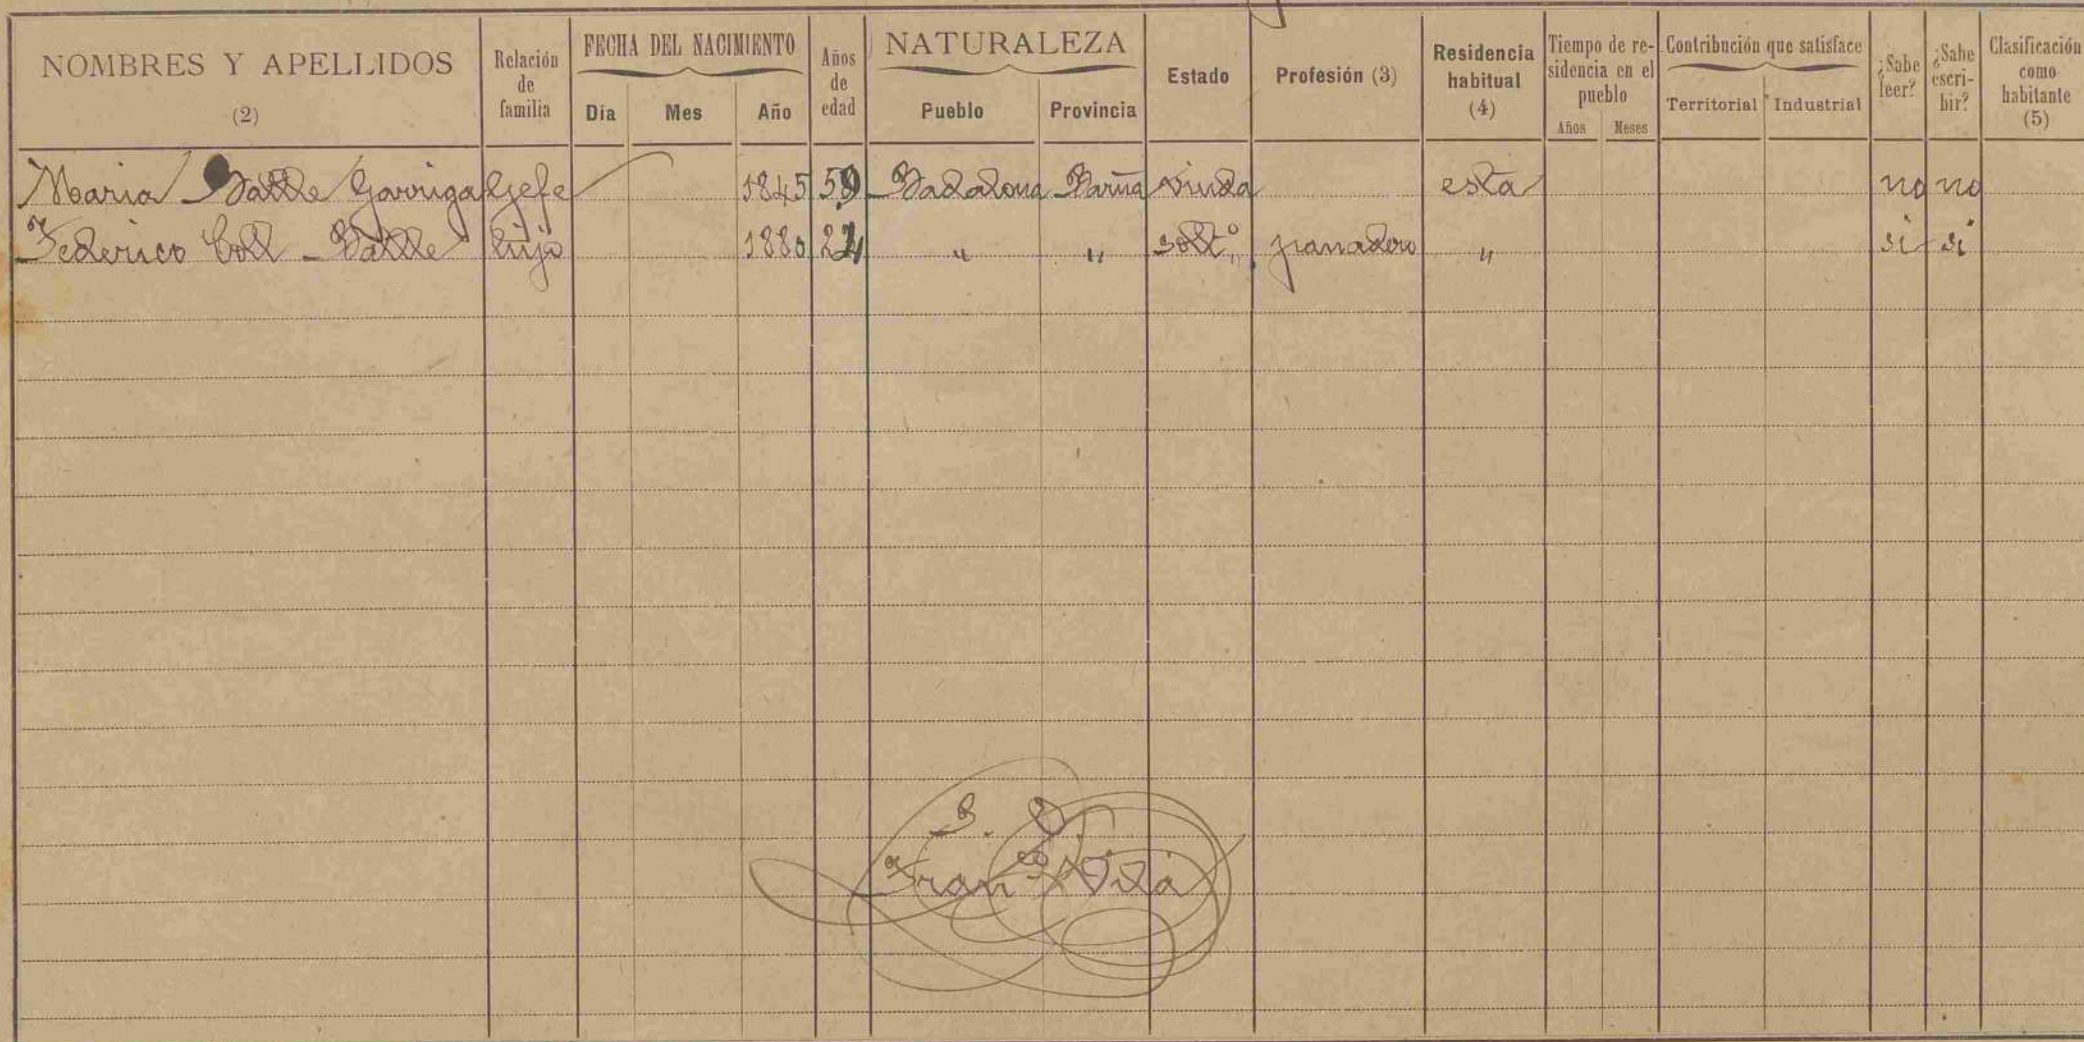 NOMBRES Y APELLIDOS (2) Relación de familia FECHA DEL NACIMIENTO Día Mes Año Años de edad NATURALEZA Pueblo Provincia Estado Profesión (3) Residencia habitual (4) Tiempo de residencia en el pueblo Años Meses Contribución que satisface Territorial Industrial ¿Sabe leer? ¿Sabe escribir? Clasificación como habitante (5)
Maria Batlle Garriga Gefe 1845 59 Badalona Barna viuda esta no no
Federico Coll Batlle hijo 1880 24 " " soltº panadero " si si
Franco Vila